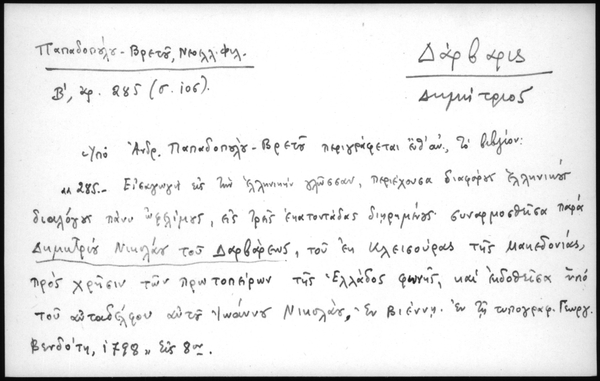 Παπαδοπούλου-Βρετοῦ, Νεοελλ. Φιλ.
Β', ἀρ. 285 (σ. 106).
Δάρβαρις
Δημήτριος
Ὑπὸ Ἀνδρ. Παπαδοπούλου-Βρετοῦ περιγράφεται ἐνθ' ἀν., τὸ βιβλίον:
«285.- Εἰσαγωγὴ εἰς τὴν ἑλληνικὴν γλῶσσαν, περιέχουσα διαφόρους ἑλληνικοὺς
διαλόγους πάνυ ὠφελίμους, εἰς τρεῖς ἑκατοντάδας διῃρημένους συναρμοσθεῖσα παρὰ
Δημητρίου Νικολάου τοῦ Δαρβάρεως, τοῦ ἐκ Κλεισούρας τῆς Μακεδονίας,
πρὸς χρῆσιν τῶν πρωτοπείρων τῆς Ἑλλάδος φωνῆς, καὶ ἐκδοθεῖσα ὑπὸ
τοῦ αὐταδέλφου αὐτοῦ Ἰωάννου Νικολάου, Ἐν Βιέννῃ. Ἐν τῇ τυπογραφ. Γεωργ.
Βενδότη, 1798, εἰς 8ον.